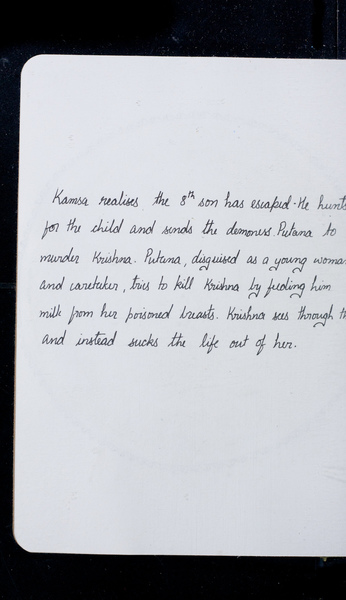 Kamsa realises the 8th son has escaped. He hunts
for the child and sends the demoness. Putana to
murder Krishna. Putana, disguised as a young woman
and caretaker, tries to kill Krishna by feeding him
milk from her poisoned breasts. Krishna sees through
and instead sucks the life out of her.